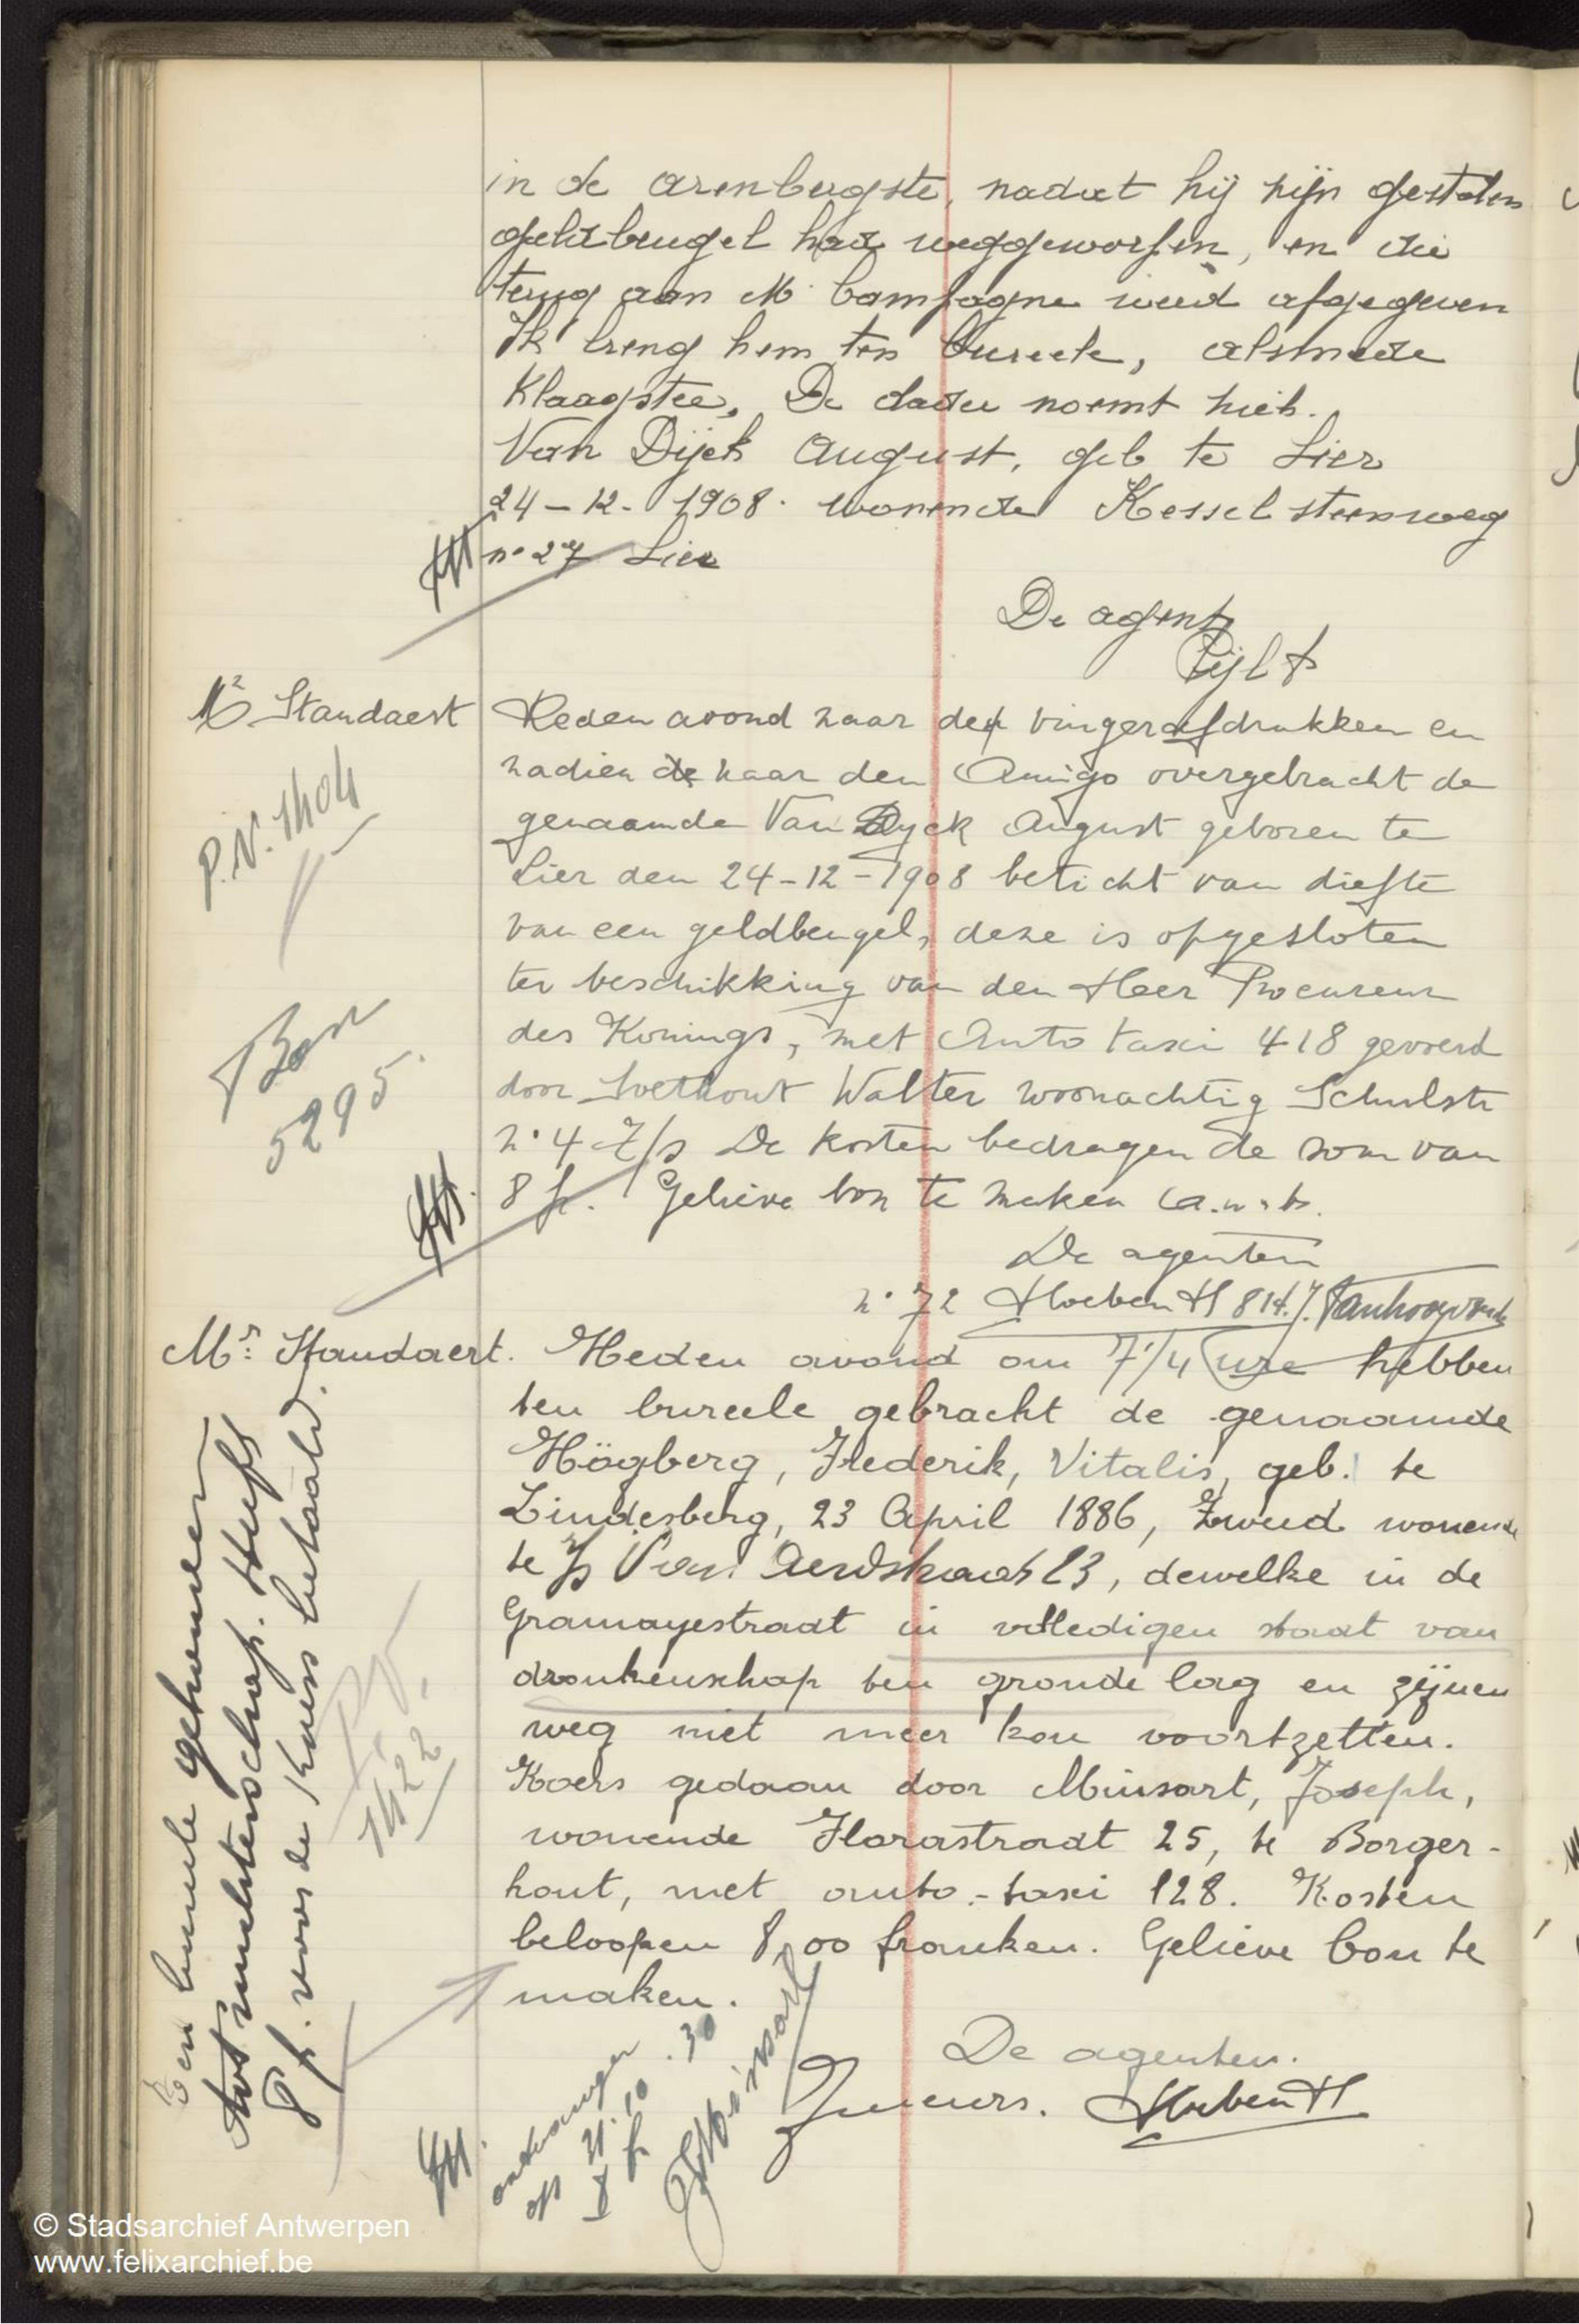 in de arenbergstr, nadat hij zijn gestolen
geldbeugel had weggeworfen, en die
terug aan M Campagne werd afgegeven
Ik breng hem ten bureele, alsmede
Klaagster, De dader noemt zich.
Van Dijck August, geb te Lier
24-12-1908. wonende Kessel steenweg
n° 27 Lier
De agent
Pijl
Mr Standaert
Heden avond naar den vingerafdrukken en
nadien de naar den Amigo overgebracht de
genaamde Van Dyck August geboren te
Lier den 24-12-1908 beticht van diefte
van een geldbeugel, deze is opgesloten
ter beschikking van den Heer Procureur
des Konings, met Auto taxi 418 gevoerd
door Walter woonachtig Schulstr
n° 4 De kosten bedragen de som van
8 fr. Gelieve bon te maken a.u.b.
P.V. 1404
Bon
5295.
De agenten
n° 72 Hoeben H 814. J.
Mr: Standaert.
Heden avond om 7 1/4 ure hebben
ten bureele gebracht de genaamde
Högberg, Frederik, Vitalis, geb. te
Lindesberg, 23 April 1886, Zweed wonende
te Van 23, dewelke in de
Gramayestraat in volledigen staat van
dronkenschap ten gronde lag en zijnen
weg niet meer kon voortzetten.
Koers gedaan door Minsart, Joseph,
wonende Florastraat 25, te Borger-
hout, met auto-taxi 128. Kosten
beloopen 8,00 franken. Gelieve bon te
maken.
De agenten.
Hoeben H
P.V.
1422
Ten bureele gekomen
Heeft
8 fr. voor de Koers betaald.
ontvangen
op 21.10.30
8 fr
J Minsart
© Stadsarchief Antwerpen
www.felixarchief.be